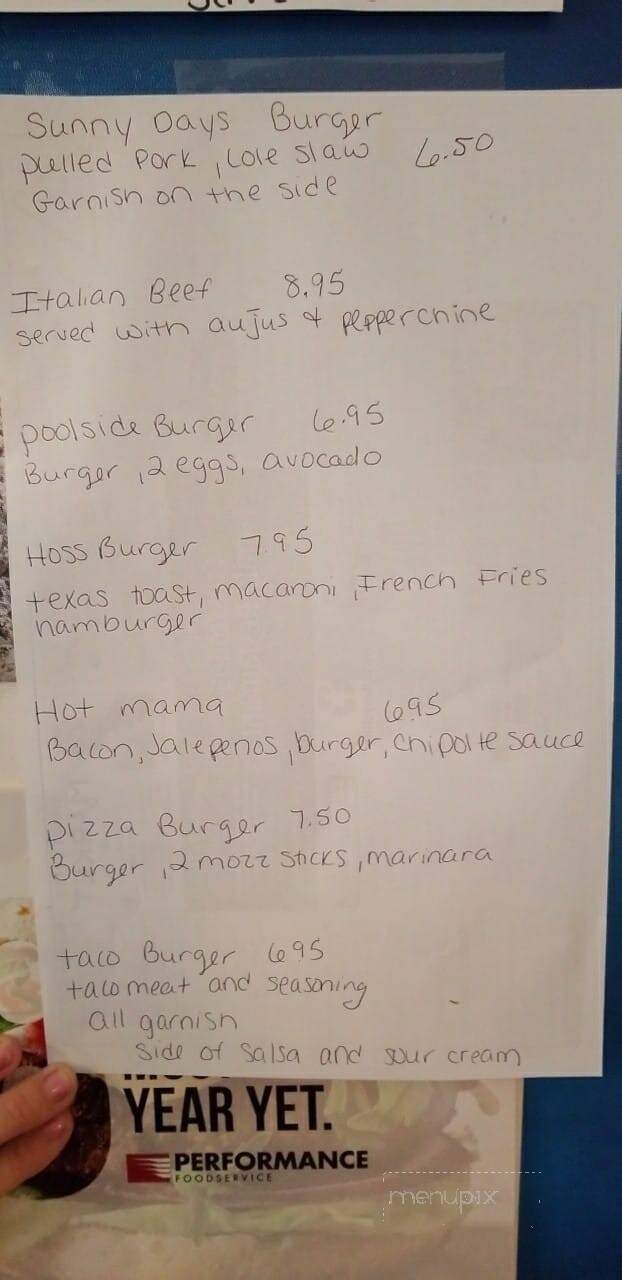 Sunny Days Burger
pulled Pork, Cole slaw 6.50
Garnish on the side
Italian Beef 8.95
served with aujus & pepperchine
poolside Burger 6.95
Burger, 2 eggs, avocado
Hoss Burger 7.95
texas toast, macaroni, French Fries
hamburger
Hot mama 6.95
Bacon, Jalepenos, burger, chipolte sauce
pizza Burger 7.50
Burger, 2 mozz sticks, marinara
taco Burger 6.95
taco meat and seasoning
all garnish
side of salsa and sour cream
YEAR YET.
PERFORMANCE
FOODSERVICE
menupix